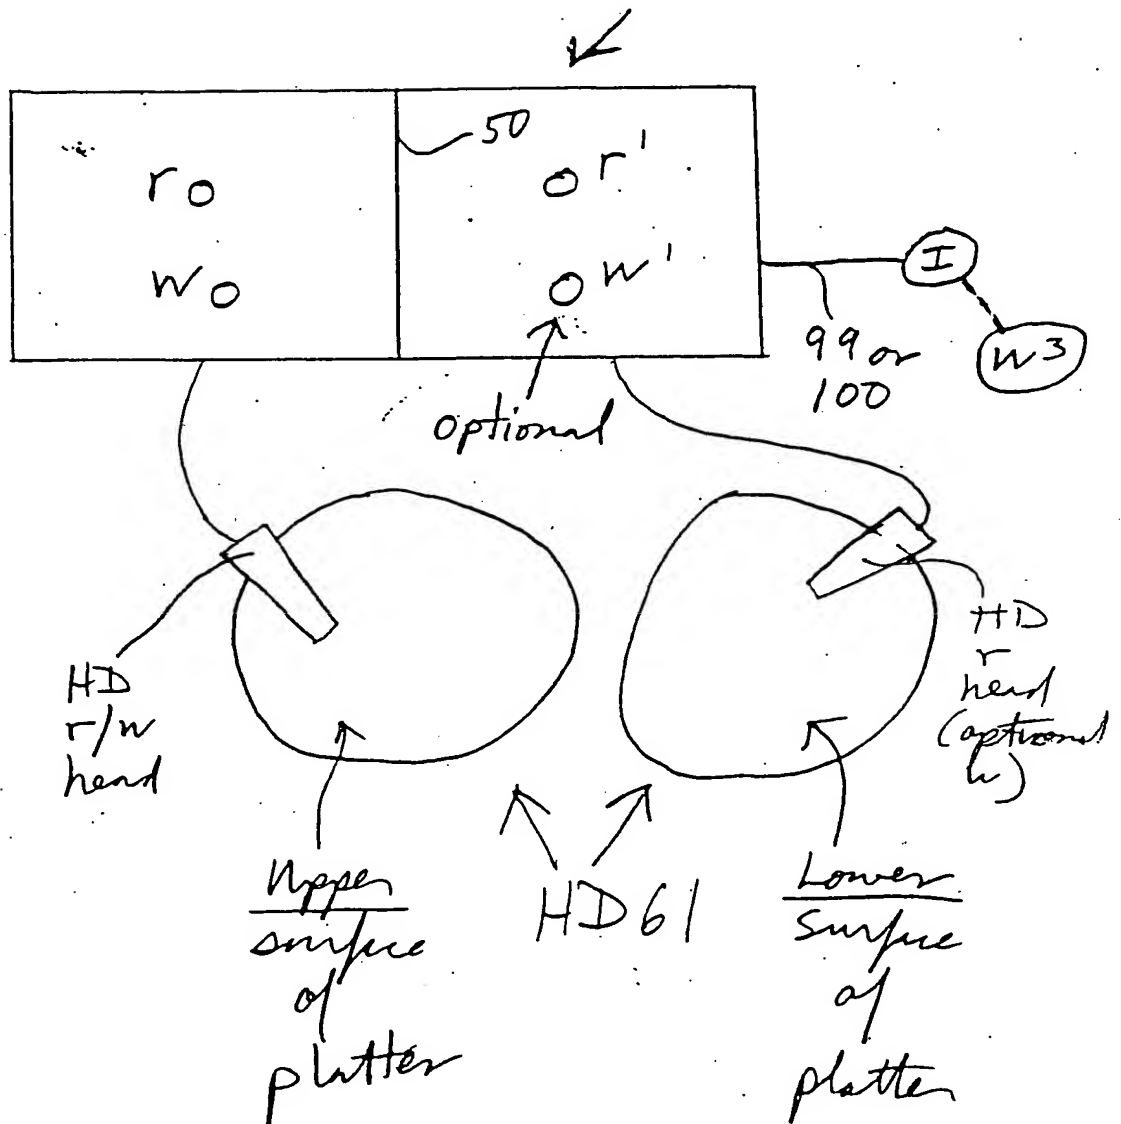 50
r
r'
w
w'
I
W3
99 or
100
optional
HD
r/w
head
HD
r
head
(optional
w)
Upper
surface
of
platter
HD61
Lower
surface
of
platter